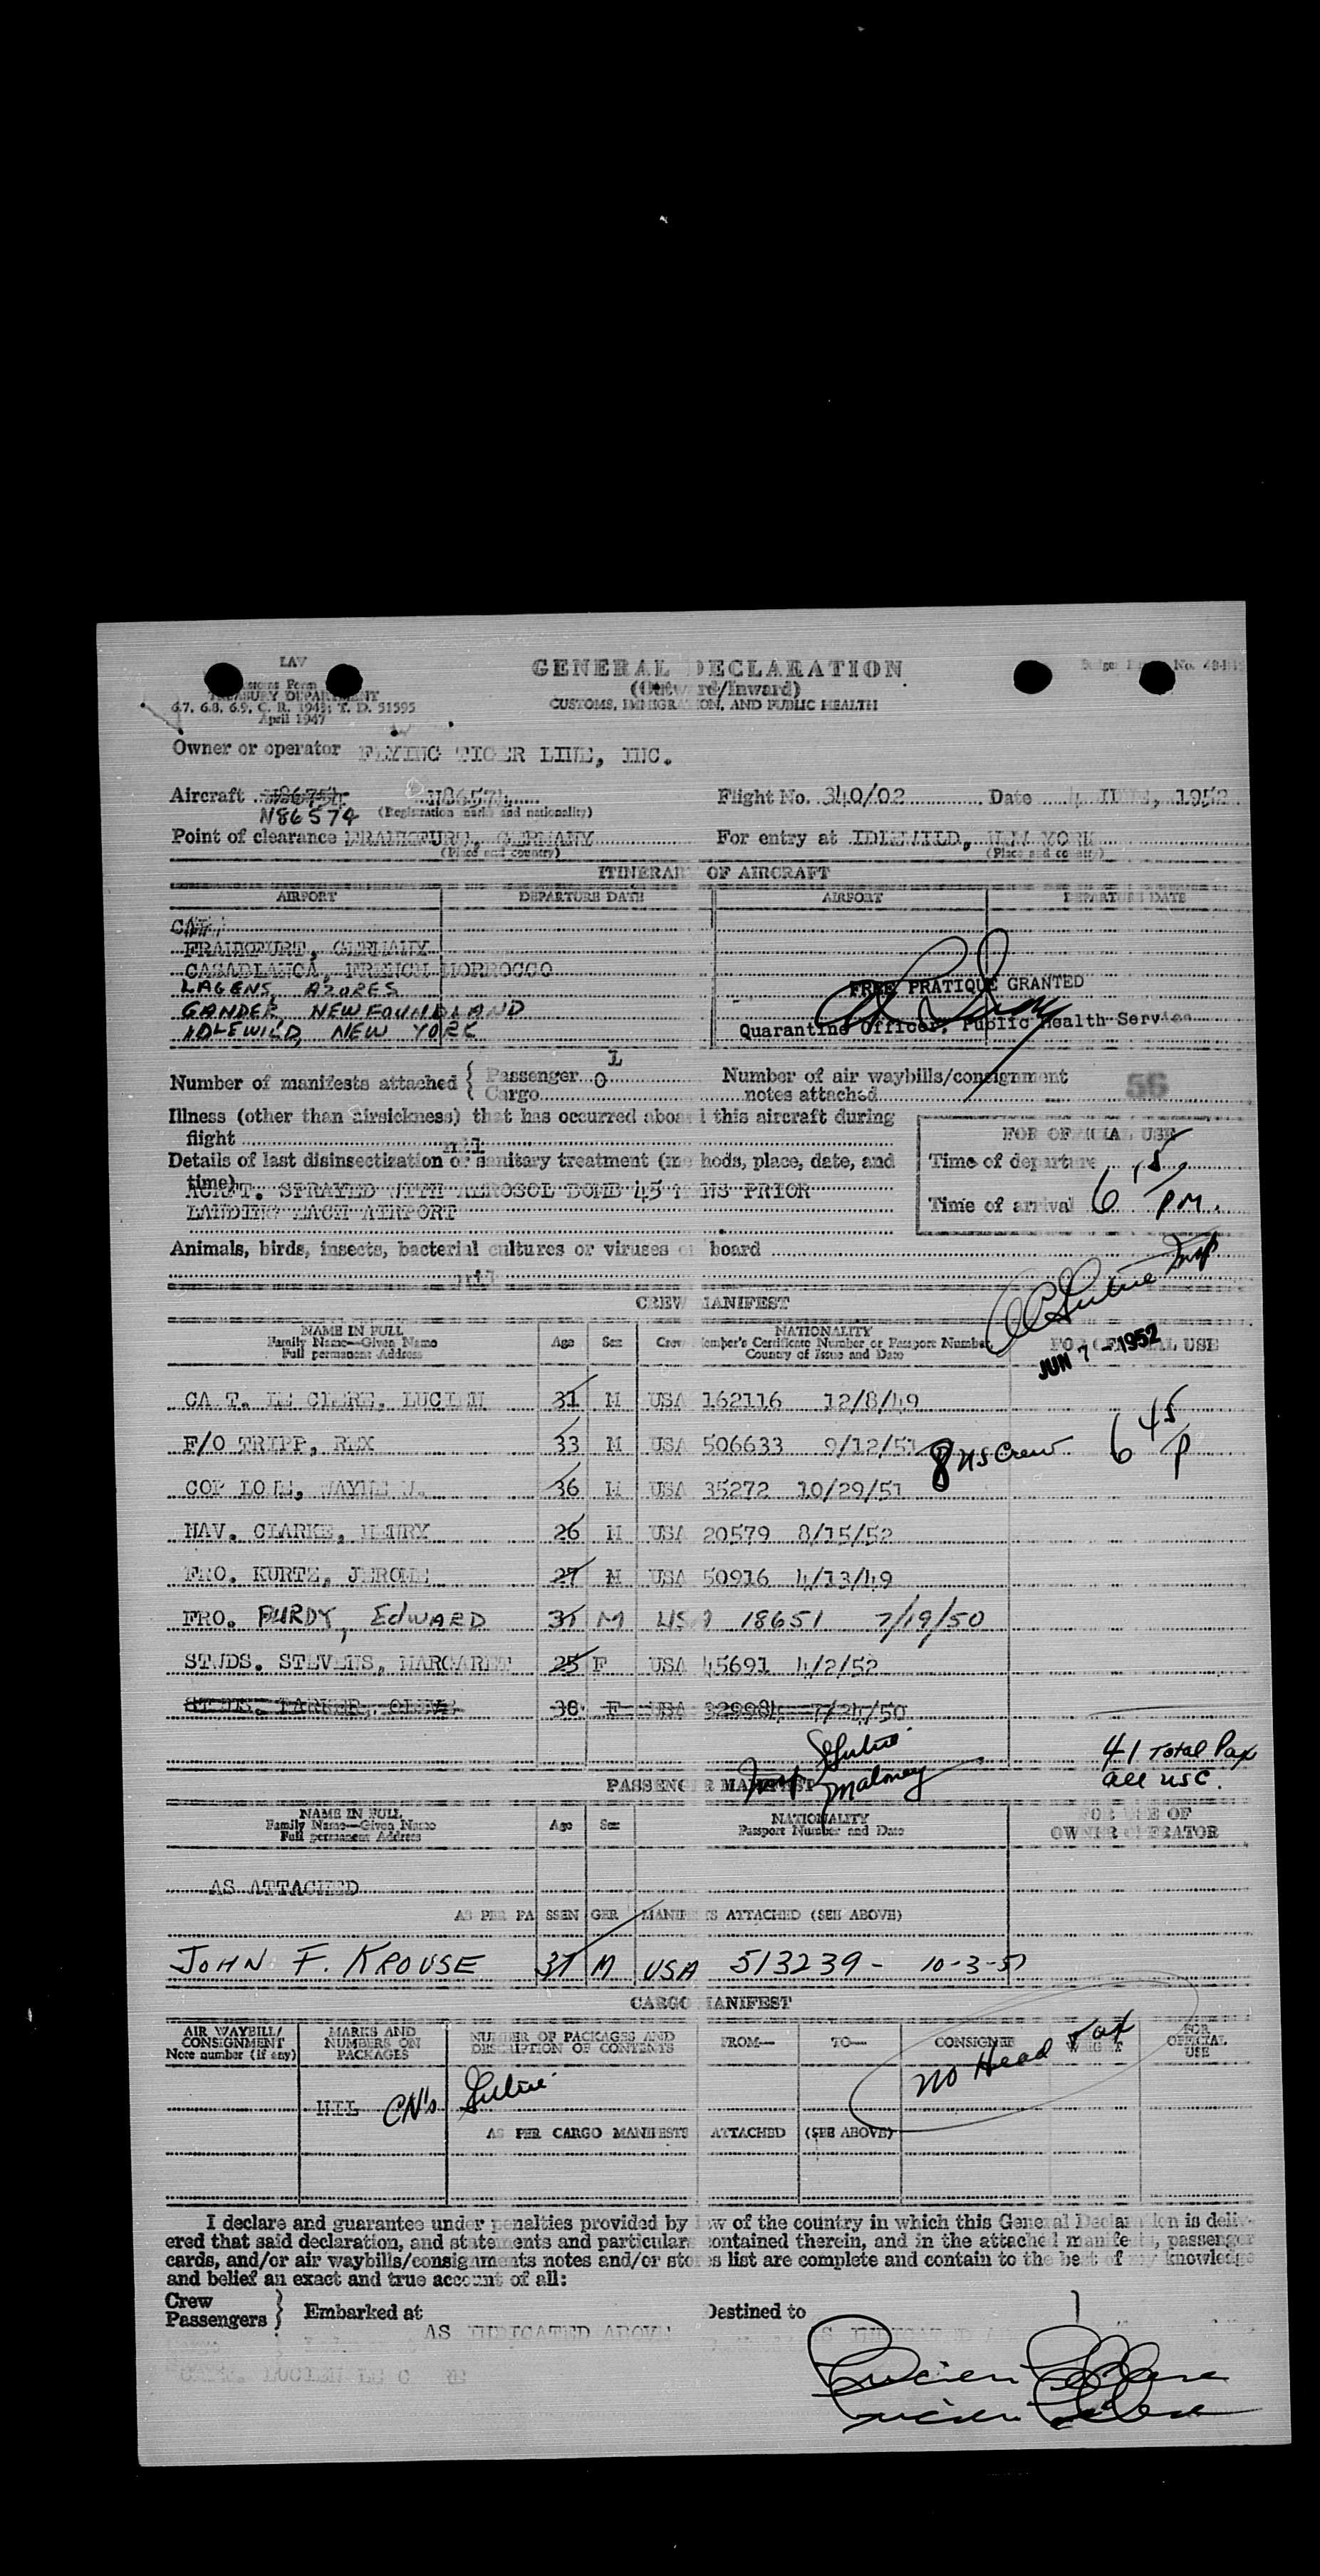 LAV
Customs Form
TREASURY DEPARTMENT
6.7, 6.8, 6.9, C. R. 1943; T. D. 51595
April 1947
GENERAL DECLARATION
(Outward/Inward)
CUSTOMS, IMMIGRATION, AND PUBLIC HEALTH
Owner or operator FLYING TIGER LINE, INC.
Aircraft N86574 Flight No. 340/02 Date 1952
N86574 (Registration marks and nationality)
Point of clearance FRANKFURT, GERMANY For entry at IDLEWILD, NEW YORK
(Place and country) (Place and country)
ITINERARY OF AIRCRAFT
AIRPORT DEPARTURE DATE AIRPORT DEPARTURE DATE
FRANKFURT, GERMANY
CASABLANCA, FRENCH MORROCCO
LAGENS, AZORES
FREE PRATIQUE GRANTED
GANDER, NEWFOUNDLAND
IDLEWILD, NEW YORK
Quarantine Officer, Public Health Service
1
Number of manifests attached { Passenger 0 Number of air waybills/consignment
Cargo notes attached 56
Illness (other than airsickness) that has occurred aboard this aircraft during
flight nil
FOR OFFICIAL USE
Details of last disinsectization or sanitary treatment (methods, place, date, and
time)
Time of departure
ACRFT. SPRAYED WITH AEROSOL BOMB 45 MINS PRIOR
LANDING EACH AIRPORT
Time of arrival 6 15 PM.
Animals, birds, insects, bacterial cultures or viruses on board
nil
CREW MANIFEST
NAME IN FULL
Family Name—Given Name
Full permanent Address
Age Sex
NATIONALITY
Crew Member's Certificate Number or Passport Number
Country of Issue and Date
FOR OFFICIAL USE
JUN 7 - 1952
CAPT. LE CLERE, LUCIEN 31 M USA 162116 12/8/49
F/O TRIPP, REX 33 M USA 506633 9/12/51 8 US Crew 6 45 P
COP LOWE, WAYNE J. 36 M USA 35272 10/29/51
NAV. CLARKE, HENRY 26 M USA 20579 8/15/52
FRO. KURTZ, JEROME 27 M USA 50916 4/13/49
FRO. PURDY, EDWARD 31 M USA 18651 7/19/50
STWDS. STEVENS, MARGARET 25 F USA 45691 4/2/52
STWDS. PARKER, OLIVE 38 F USA 329984 7/24/50
Maloney
41 Total Pax
all USC.
PASSENGER MANIFEST
NAME IN FULL
Family Name—Given Name
Full permanent Address
Age Sex
NATIONALITY
Passport Number and Date
FOR USE OF
OWNER OPERATOR
AS ATTACHED
AS PER PASSENGER MANIFESTS ATTACHED (SEE ABOVE)
JOHN F. KROUSE 37 M USA 513239 - 10-3-51
CARGO MANIFEST
AIR WAYBILL/
CONSIGNMENT
Note number (if any)
MARKS AND
NUMBERS ON
PACKAGES
NUMBER OF PACKAGES AND
DESCRIPTION OF CONTENTS
FROM— TO— CONSIGNEE WEIGHT
FOR
OFFICIAL
USE
no Head Tax
NIL CN's
AS PER CARGO MANIFESTS ATTACHED (SEE ABOVE)
I declare and guarantee under penalties provided by law of the country in which this General Declaration is deliv-
ered that said declaration, and statements and particulars contained therein, and in the attached manifests, passenger
cards, and/or air waybills/consignments notes and/or stores list are complete and contain to the best of my knowledge
and belief an exact and true account of all:
Crew
Passengers } Embarked at Destined to
AS INDICATED ABOVE AS INDICATED
CAPT. LUCIEN LE CLERE
Lucien LeClere
Lucien LeClere